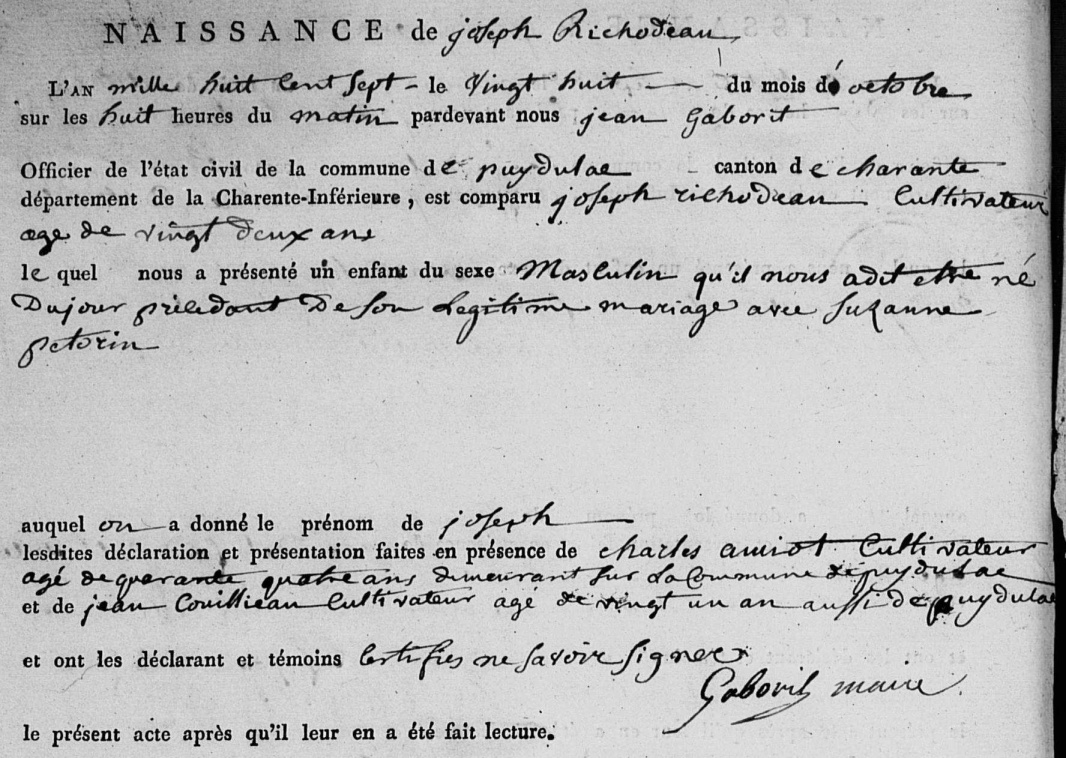 NAISSANCE de joseph Richodeau
L'AN mille huit Cent Sept - le Vingt huit du mois d'octobre
sur les huit heures du matin pardevant nous jean Gaborit
Officier de l'état civil de la commune de puydulac canton de charante
département de la Charente-Inférieure, est comparu joseph richodeau Cultivateur
age de vingt deux ans
le quel nous a présenté un enfant du sexe Masculin qu'il nous a dit etre né
Du jour précedant De Son Legitime mariage avec Suzanne
petorin
auquel on a donné le prénom de joseph
lesdites déclaration et présentation faites en présence de charles amiot Cultivateur
agé de quarante quatre ans demeurant Sur La Commune de puydulac
et de jean Couillieau Cultivateur agé de vingt un an aussi de puydulac
et ont les déclarant et témoins Certifies ne Savoir Signer
Gaborit maire
le présent acte après qu'il leur en a été fait lecture.